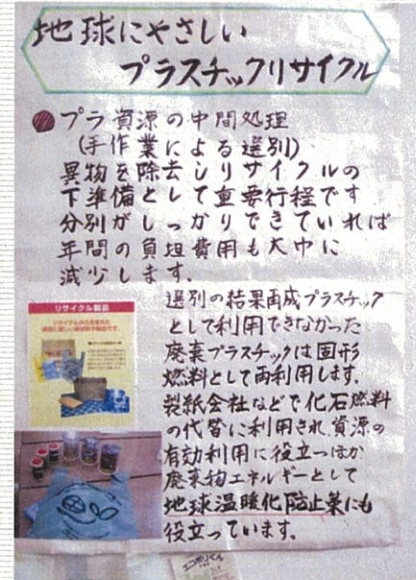 地球にやさしい
プラスチックリサイクル
プラ資源の中間処理
(手作業による選別)
異物を除去しリサイクルの
下準備として重要行程です
分別がしっかりできていれば
年間の負担費用も大巾に
減少します。
選別の結果再成プラスチック
として利用できなかった
廃棄プラスチックは固形
燃料として再利用します。
製紙会社などで化石燃料
の代替に利用され資源の
有効利用に役立つほか
廃棄物エネルギーとして
地球温暖化防止策にも
役立っています。
リサイクル製品